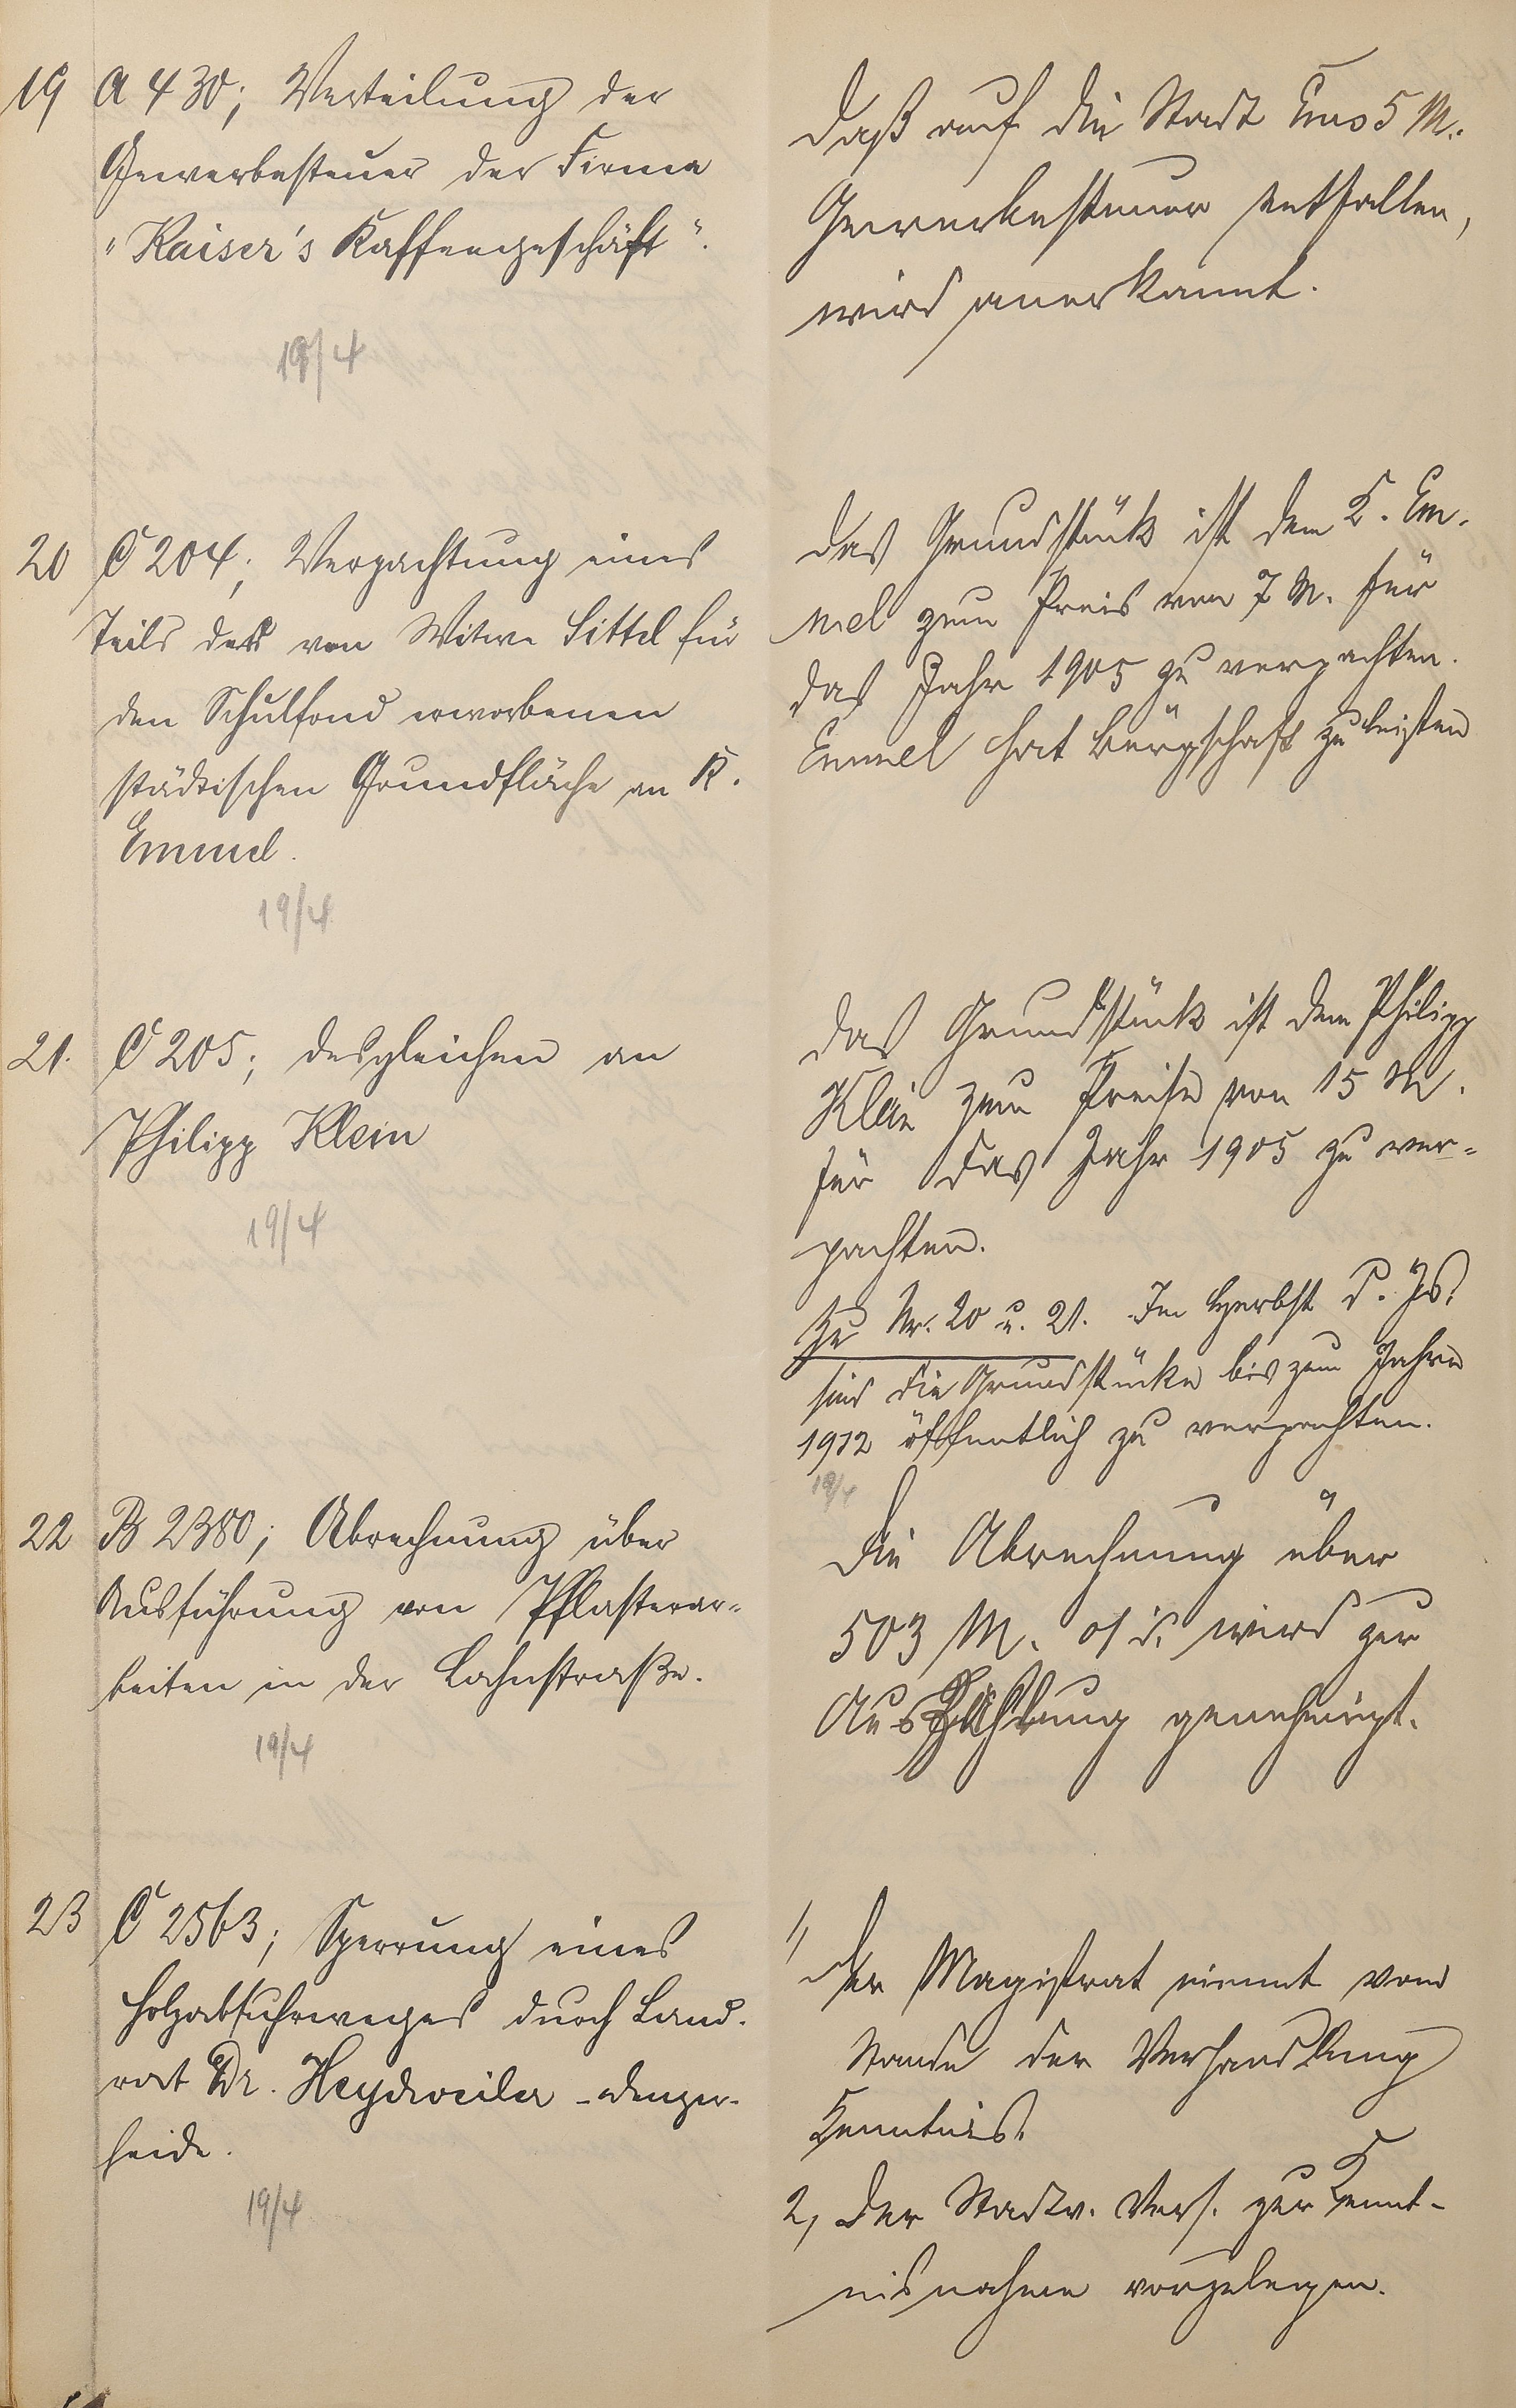 19 A 430; Verteilung der
Gewerbesteuer der Firma
"Kaiser's Kaffeegeschäft".
19/4
Daß auf die Stadt Ems 5 M.
Gewerbesteuer entfallen,
wird anerkannt.
20 C 204; Verpachtung eines
Teils der von Witwe Sittel für
den Schulfond erworbenen
städtischen Grundfläche an K.
Emmel.
19/4
Das Grundstück ist dem K. Em-
mel zum Preis von 7 M. für
das Jahr 1905 zu verpachten.
Emmel hat Bürgschaft zu leisten
21. C 205; desgleichen an
Philipp Klein
19/4
Das Grundstück ist dem Philipp
Klein zum Preise von 15 M.
für das Jahr 1905 zu ver-
pachten.
Zu Nr. 20 u. 21. Im Herbst d. Js.
sind die Grundstücke bis zum Jahre
1912 öffentlich zu verpachten.
19/4
22 B 2380; Abrechnung über
Ausführung von Pflasterar-
beiten in der Lahnstraße.
19/4
Die Abrechnung über
503 M. 01 d. wird zur
Auszahlung genehmigt.
23 C 2563; Sperrung eines
Holzabfuhrweges durch Land-
rat Dr. Heydweiler - Denzer-
heide.
19/4
1, Der Magistrat nimmt vom
Stande der Verhandlung
Kenntnis.
2, Der Stadtv. Vers. zur Kennt-
nisnahme vorzulegen.